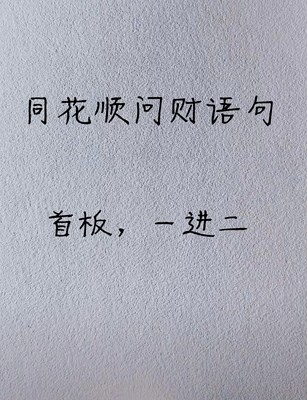 同花顺问财语句
首板，一进二